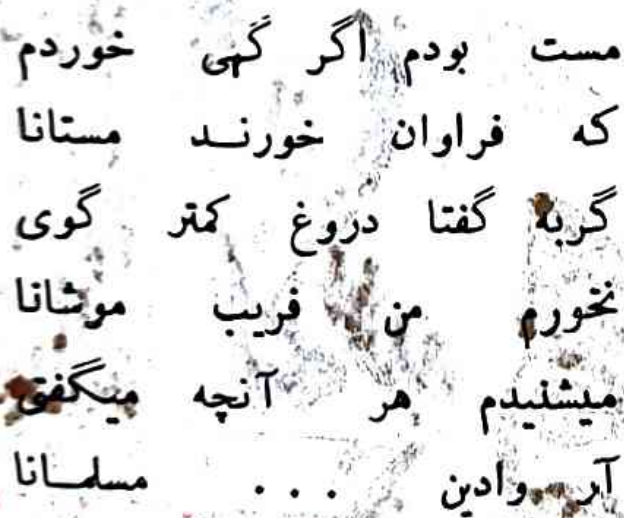 مست بودم اگر گهی خوردم
که فراوان خورند مستانا
گربه گفتا دروغ کمتر گوی
نخورم من فریب موشانا
میشنیدم هر آنچه میگفتی
آر وادین ... مسلمانا